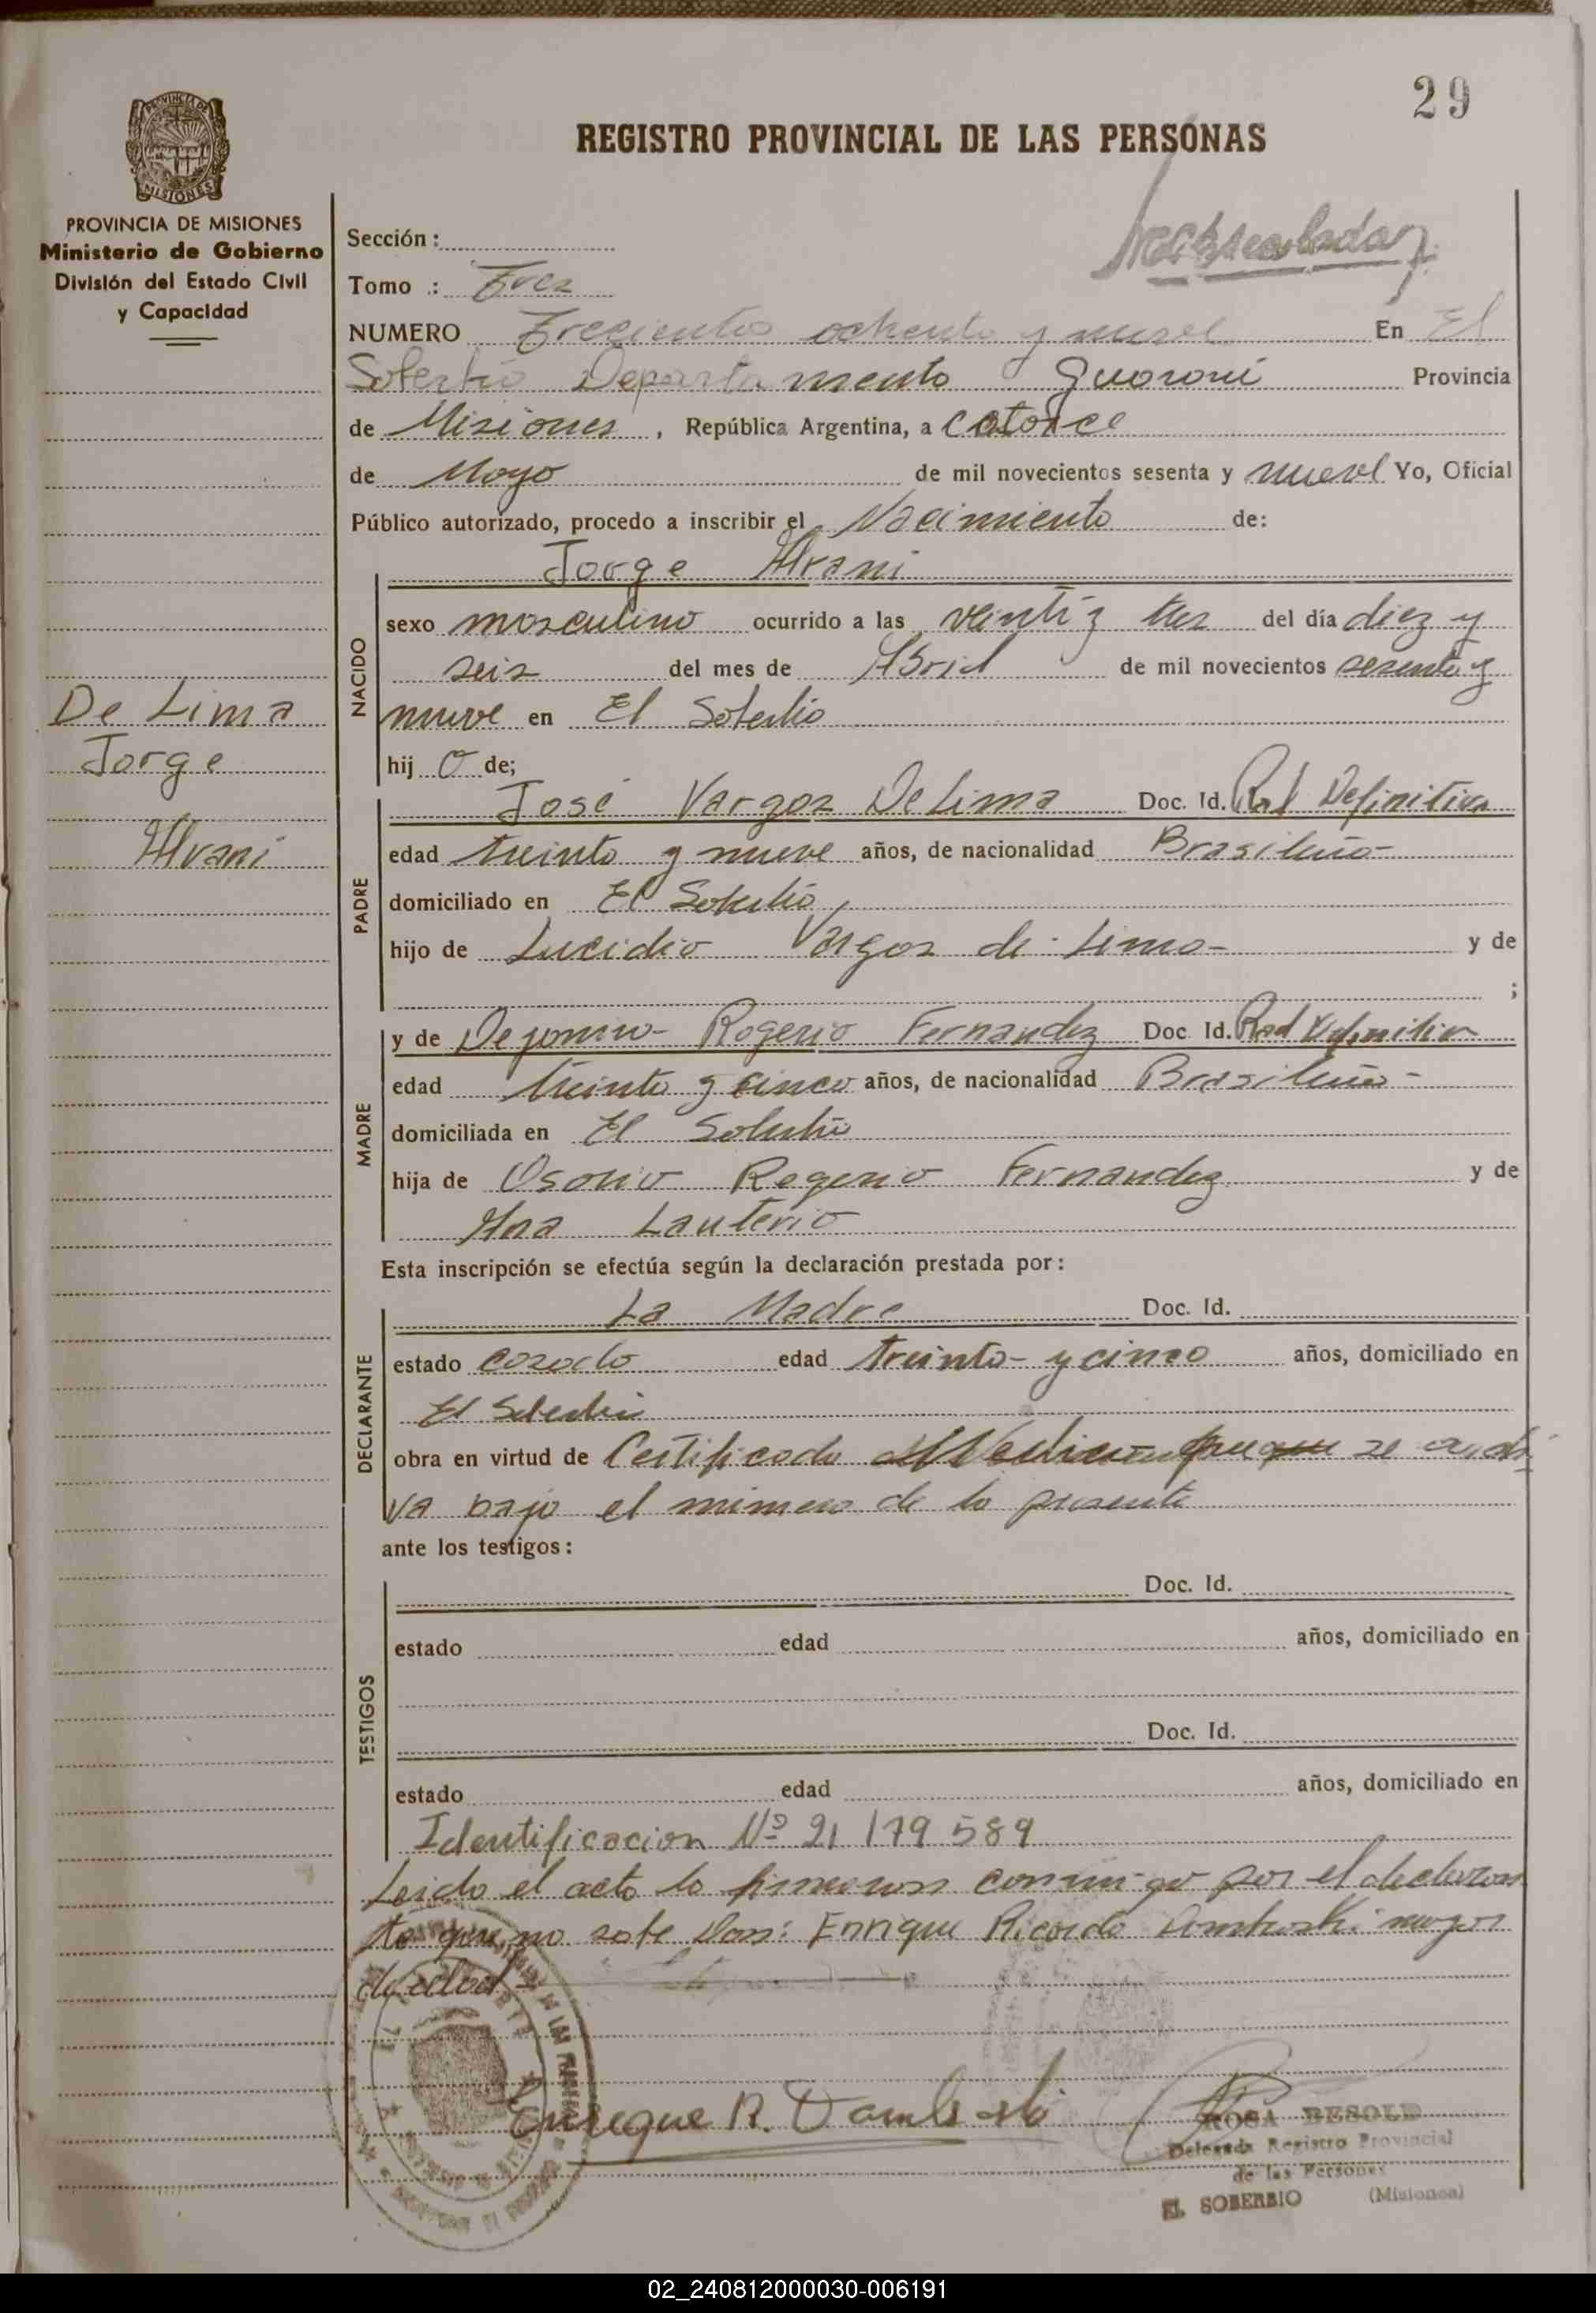 29
REGISTRO PROVINCIAL DE LAS PERSONAS
PROVINCIA DE MISIONES
MISIONES
PROVINCIA DE MISIONES
Ministerio de Gobierno
División del Estado Civil
y Capacidad
De Lima
Jorge
Alvani
Sección :
Tomo : Tres
NUMERO Trecientos ochenta y nueve En El
Soberbio Departamento Guarani Provincia
de Misiones , República Argentina, a catorce
de Mayo de mil novecientos sesenta y nueve Yo, Oficial
Público autorizado, procedo a inscribir el Nacimiento de:
Jorge Alvani
NACIDO
sexo masculino ocurrido a las veinti y tres del día diez y
seis del mes de Abril de mil novecientos sesenta y
nueve en El Soberbio
hij o de;
PADRE
José Vargas De Lima Doc. Id. Rad Definitiva
edad treinta y nueve años, de nacionalidad Brasileña-
domiciliado en El Soberbio
hijo de Lucidio Vargas de Lima- y de
;
MADRE
y de Rogerio Fernandez Doc. Id. Rad Definitiva
edad treinta y cinco años, de nacionalidad Brasileña-
domiciliada en El Soberbio
hija de Osorio Rogerio Fernandez y de
Ana Lauterio
Esta inscripción se efectúa según la declaración prestada por :
DECLARANTE
La Madre Doc. Id.
estado casado edad treinta- y cinco años, domiciliado en
El Soberbio
obra en virtud de Certificado que se archi
va bajo el numero de la presente
ante los testigos :
TESTIGOS
Doc. Id.
estado edad años, domiciliado en
Doc. Id.
estado edad años, domiciliado en
Identificacion Nº 21 179 589
Leido el acta la firmaron conmigo por el declaran
te que no sabe Enrique Ricardo mayor
de edad
Enrique R.
ROSA BESOLD
Delegada Registro Provincial
de las Personas
EL SOBERBIO (Misiones)
02_240812000030-006191